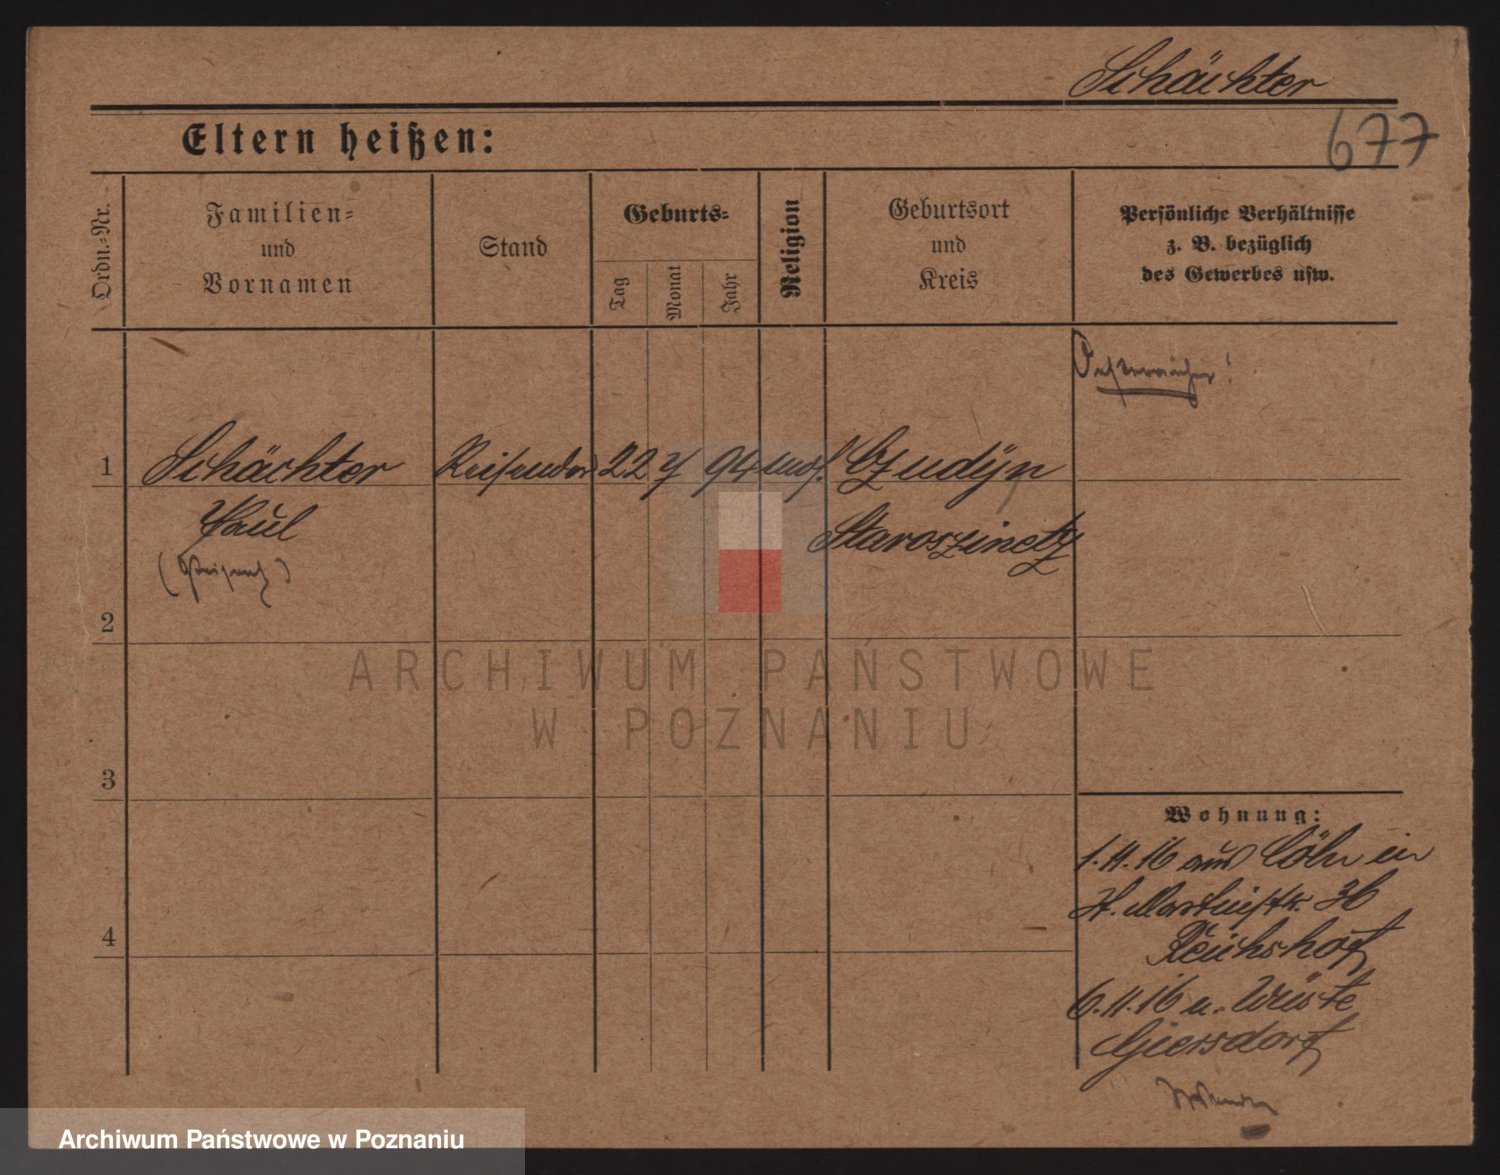 Schächter
677
Eltern heißen:
Ordn.-Nr.
Familien-
und
Vornamen
Stand
Geburts-
Tag
Monat
Jahr
Religion
Geburtsort
und
Kreis
Persönliche Verhältnisse
z. B. bezüglich
des Gewerbes usw.
Oesterreicher!
1
Schächter Reisender 22 7 94 mos. Czudyn
Paul
Staroszinetz
2
3
4
Wohnung:
1.11.16 aus Cöln in
St. Martinstr. 36
Reichshof
6.11.16 n. Wüste
Giersdorf
ARCHIWUM PAŃSTWOWE
W POZNANIU
Archiwum Państwowe w Poznaniu